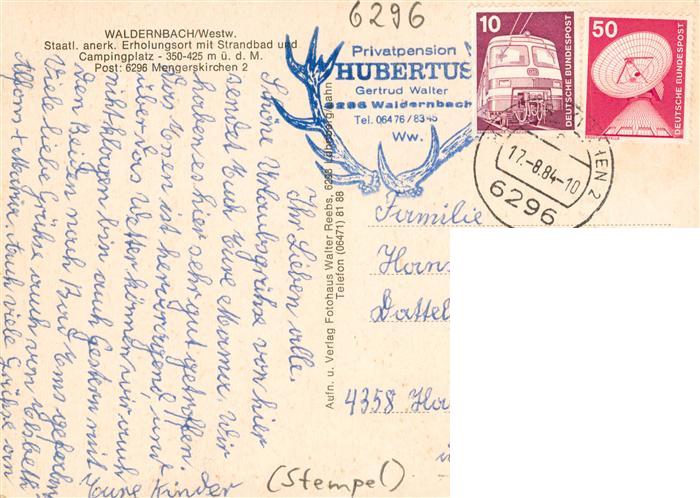 6296
WALDERNBACH/Westw.
Staatl. anerk. Erholungsort mit Strandbad und
Campingplatz - 350-425 m ü. d. M.
Post: 6296 Mengerskirchen 2
Privatpension
HUBERTUS
Gertrud Walter
6296 Waldernbach
Tel. 06476/83
Ww.
10
DEUTSCHE BUNDESPOST
50
DEUTSCHE BUNDESPOST
HEN 2
17.-8.84-10
6296
Ihr Lieben alle.
Schöne Urlaubsgrüße von hier
sendet Euch Eure Mama. Wir
haben es hier sehr gut getroffen.
Das Essen ist hervorragend, und
über das Wetter können wir auch
nicht klagen bin auch Gestern mit
den Beiden nach Bad Ems gefahren
Viele liebe Grüße auch von Elsbeth
Albert + Martin. Auch viele Grüße an
Eure Kinder
Aufn. u. Verlag Fotohaus Walter Reebs, 6293
Telefon (06471) 81 88
Familie
Hans
Dattel
4358 Ha
(Stempel)